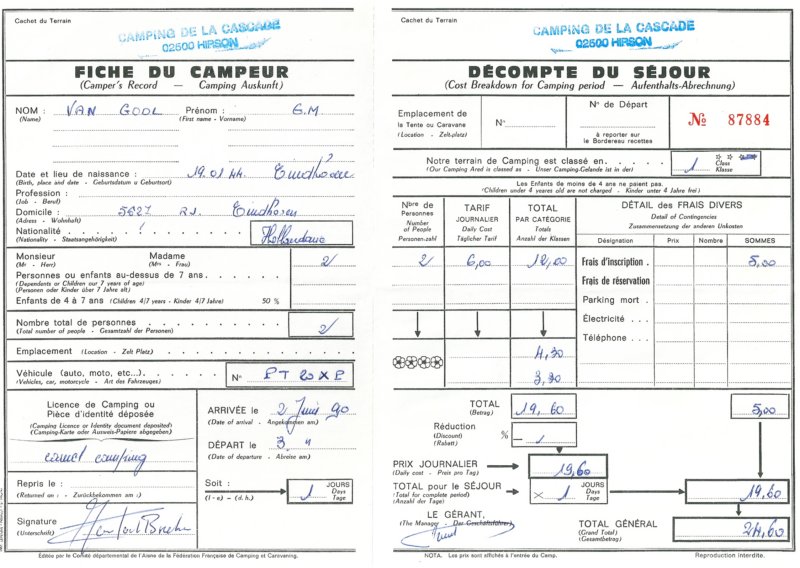 Cachet du Terrain
CAMPING DE LA CASCADE
02500 HIRSON
FICHE DU CAMPEUR
(Camper's Record — Camping Auskunft)
NOM : VAN GOOL Prénom : G.M
(Name) (First name - Vorname)
Date et lieu de naissance : 19.01 44. Eindhoven
(Birth, place and date - Geburtsdatum u Geburtsort)
Profession :
(Job - Beruf)
Domicile : 5627 RJ. Eindhoven
(Adress - Wohnhaft)
Nationalité Hollandaise
(Nationality - Staatsangehörigkeit)
Monsieur Madame 2
(Mr - Herr) (Mrs - Frau)
Personnes ou enfants au-dessus de 7 ans
(Dependents or Children our 7 years of age)
(Personen oder Kinder über 7 Jahre alt)
Enfants de 4 à 7 ans (Children 4/7 years - Kinder 4/7 Jahre) 50 %
Nombre total de personnes 2
(Total number of people - Gesamtzahl der Personen)
Emplacement (Location - Zelt Platz)
Véhicule (auto, moto, etc...) N° PT 20 XP
(Vehicles, car, motorcycle - Art des Fahrzeuges)
Licence de Camping ou
Pièce d'identité déposée
(Camping Licence or Identity document deposited)
(Camping-Karte oder Ausweis-Papiere abgegeben)
carnet camping
Repris le :
(Returned on : - Zurückbekommen am :)
Signature
(Unterschrift)
ARRIVÉE le 2 Juin 90
(Date of arrival - Angekommen am)
DÉPART le 3 "
(Date of departure - Abreise am)
Soit : 1 JOURS
(I - e) - (d. h.) Days
Tage
Éditée par le Comité départemental de l'Aisne de la Fédération Française de Camping et Caravaning.
Cachet du Terrain
CAMPING DE LA CASCADE
02500 HIRSON
DÉCOMPTE DU SÉJOUR
(Cost Breakdown for Camping period — Aufenthalts-Abrechnung)
Emplacement de
la Tente ou Caravane
(Location - Zelt-platz)
N°
N° de Départ
à reporter sur
le Bordereau recettes
№ 87884
Notre terrain de Camping est classé en 1
(Our Camping Ared is classed as - Unser Camping-Gelande ist in der)
Class
Klasse
Les Enfants de moins de 4 ane ne paient pas.
(Children under 4 yeares old are not charged - Kinder unter 4 Jahre frei)
Nbre de
Personnes
Number
of People
Personen-zahl
TARIF
JOURNALIER
Daily Cost
Täglicher Tarif
TOTAL
PAR CATÉGORIE
Totals
Anzahl der Klassen
DÉTAIL des FRAIS DIVERS
Detail of Contingencies
Zusammensetzung der anderen Unkosten
Désignation Prix Nombre SOMMES
2 6,00 12,00
Frais d'inscription 5,00
Frais de réservation
Parking mort
Électricité
Téléphone
4,30
3,30
TOTAL 19,60 5,00
(Betrag)
Réduction % —
(Discount)
(Rabatt)
PRIX JOURNALIER 19,60
(Daily cost - Preis pro Tag)
TOTAL pour le SÉJOUR × 1 JOURS 19,60
(Total for complete period) Days
(Anzahl der Tage) Tage
LE GÉRANT,
(The Manager - Der Geschäftsführer)
TOTAL GÉNÉRAL 24,60
(Grand Total)
(Gesamtbetrag)
NOTA. Les prix sont affichés à l'entrée du Camp.
Reproduction interdite.